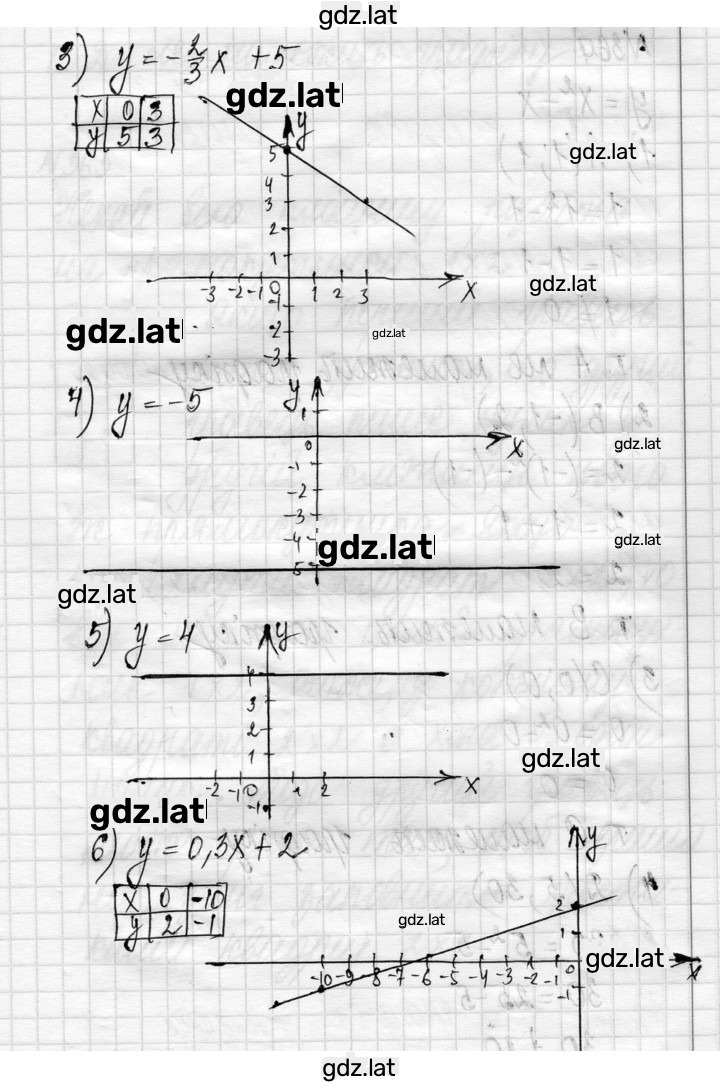 gdz.lat
3) y = -2/3 x + 5
gdz.lat
x 0 3
y 5 3
y
gdz.lat
5
4
3
2
1
gdz.lat
-3 -2 -1 0 1 2 3 x
-1
gdz.lat
gdz.lat
-2
-3
4) y = -5
y
1
0 x
gdz.lat
-1
-2
-3
-4
gdz.lat
gdz.lat
5
gdz.lat
5) y = 4
y
4
3
2
1
gdz.lat
-2 -1 0 1 2 x
gdz.lat
-1
6) y = 0,3x + 2
y
x 0 -10
y 2 -1
2
gdz.lat
1
gdz.lat
-10 -9 -8 -7 -6 -5 -4 -3 -2 -1 0 x
-1
gdz.lat